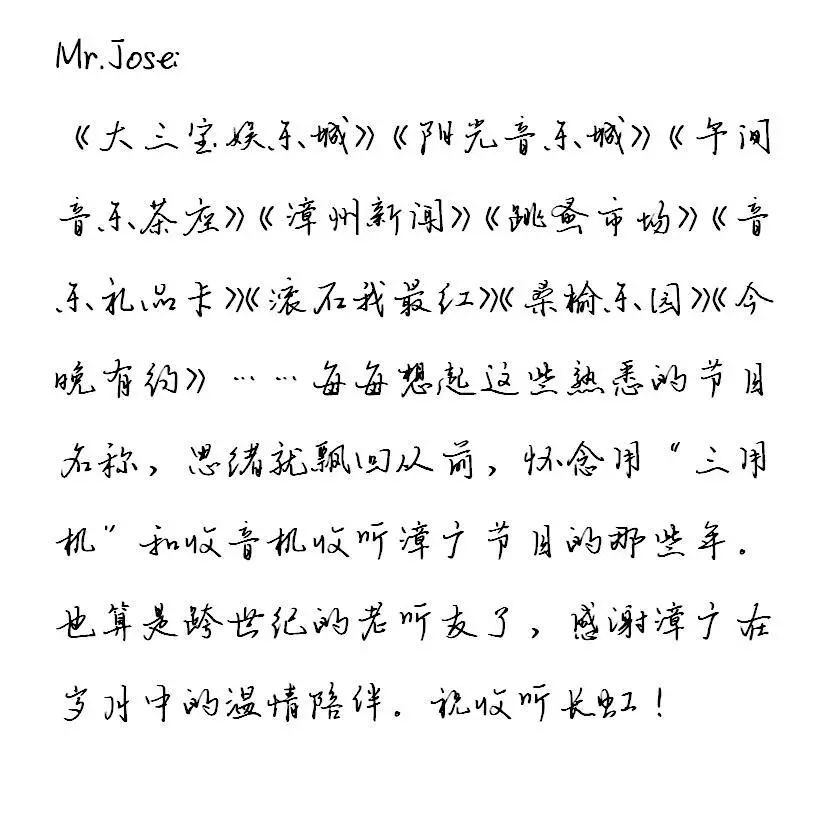 Mr.Jose:
《大三宝娱乐城》《阳光音乐城》《午间
音乐茶座》《漳州新闻》《跳蚤市场》《音
乐礼品卡》《滚石我最红》《桑榆乐园》《今
晚有约》……每每想起这些熟悉的节目
名称，思绪就飘回从前，怀念用“三用
机”和收音机收听漳广节目的那些年。
也算是跨世纪的老听友了，感谢漳广在
岁月中的温情陪伴。祝收听长虹！